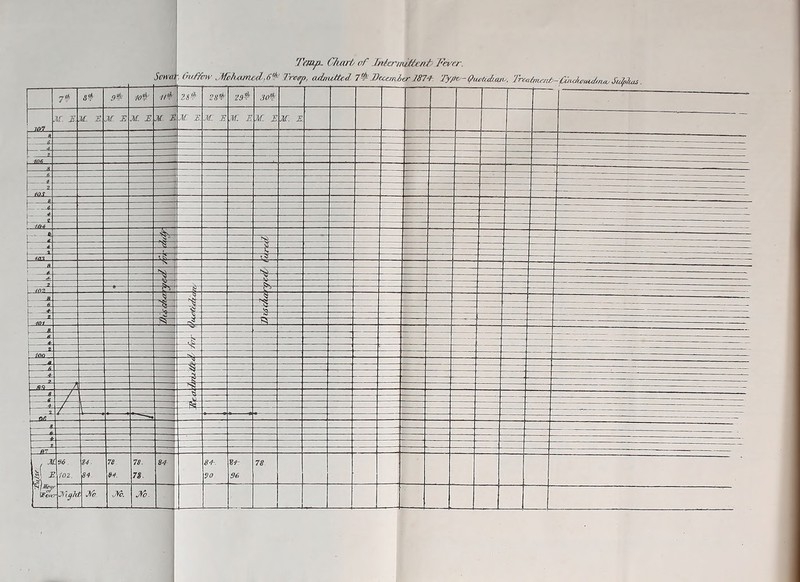 Temp. Chart of Intermittent Fever.
Sowar. Guffow Mohamed. 6th Troop, admitted 7th December 1874. Type - Quotidian. Treatment - Cinchonidina Sulphas.
7th 8th 9th 10th 11th 28th 28th 29th 30th
M. E M. E M. E M. E M. E M. E M. E M. E M. E M. E
107
8
6
4
2
106
8
6
4
2
105
8
6
4
2
104
8
6
4
2
103
8
6
4
2
102
8
6
4
2
101
8
6
4
2
100
8
6
4
2
99
8
6
4
2
98
8
6
4
2
97
Discharged for duty
Readmitted for Quotidian
Discharged Cured
Pulse
M. 96 84 78 78. 84 84. 84 78
E. 102. 84 84 78. 90 96
Hour of Fever Night No No. No.